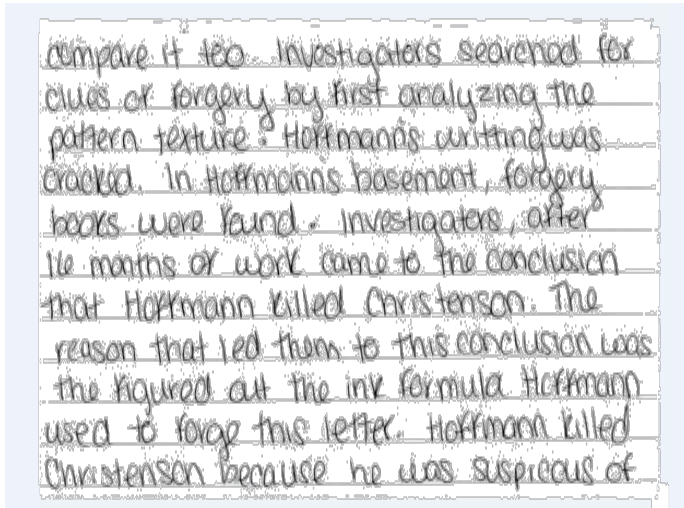 compare it too. Investigators searched for
clues of forgery by first analyzing the
pattern texture. Hoffmann's writting was
cracked. In Hoffmann's basement, forgery
books were found. Investigators, after
16 months of work came to the conclusion
that Hoffmann killed Christenson. The
reason that led them to this conclusion was
the figured out the ink formula Hoffmann
used to forge this letter. Hoffmann killed
Christenson because he was suspicous of